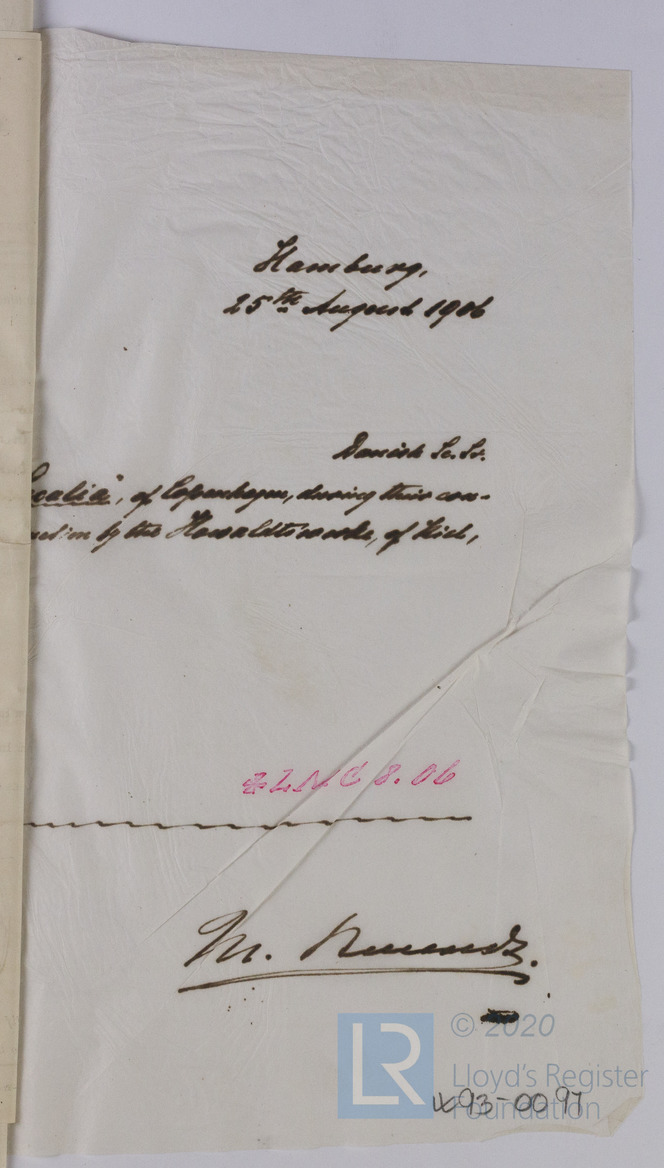 Hamburg,
25th August 1906
Danish Sc. Sr.
ealia", of Copenhagen, during their con-
uction by the Howaldtswerke, of Kiel,
8.06
M.
© 2020
LR
Lloyd's Register
Foundation
W93-0097